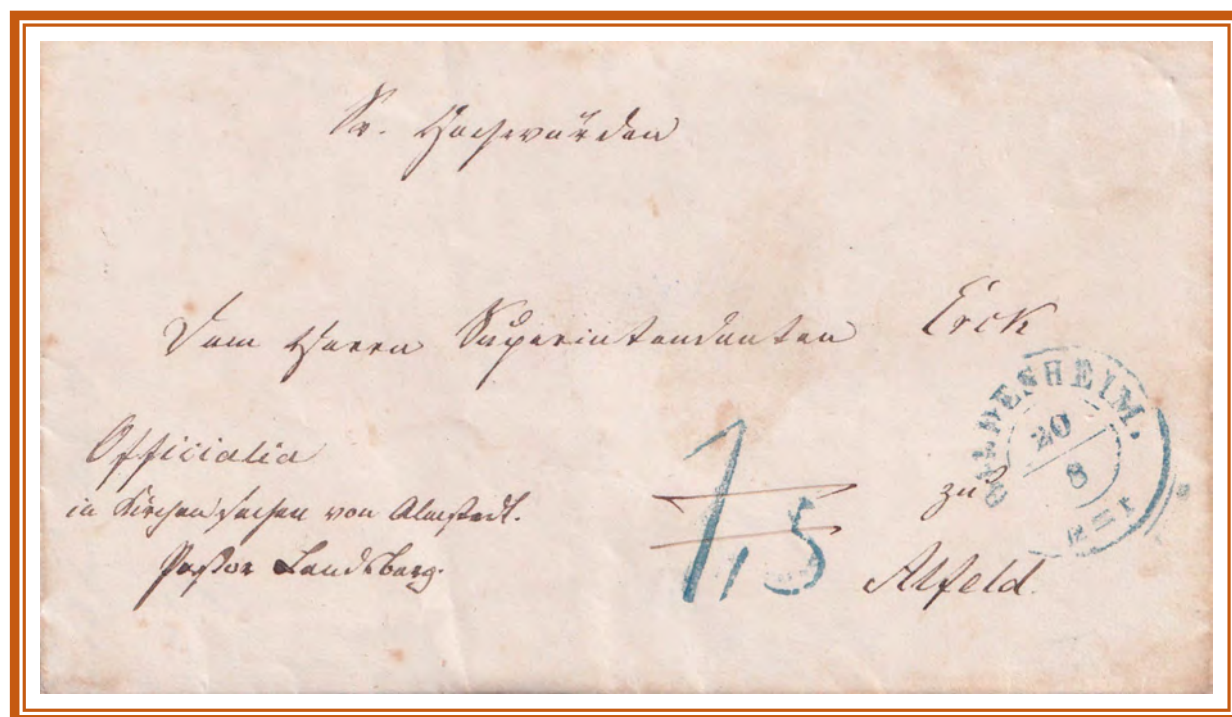 Sr. Hochwürden
Dem Herrn Superintendenten Erck
Officialia
in Kirchensachen von Almstedt.
Pastor Landsberg.
1,5
zu
Alfeld.
HILDESHEIM.
20
8